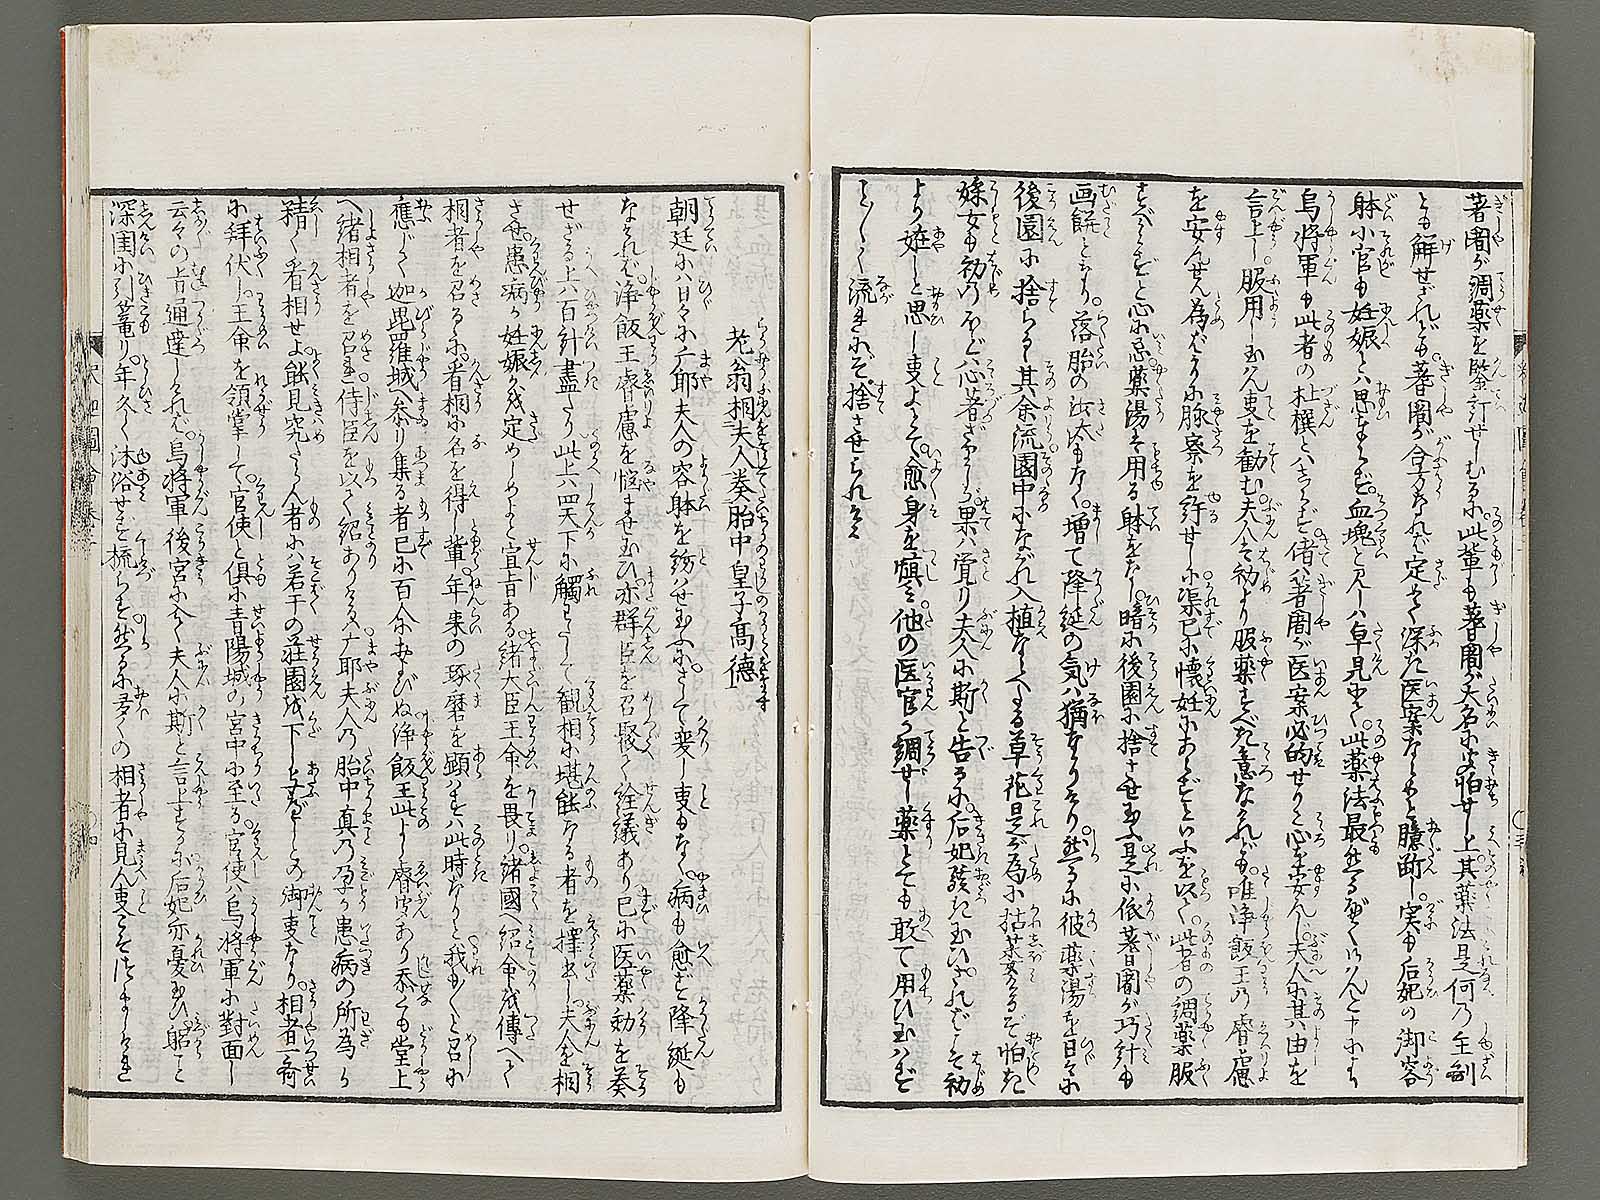 耆闍が調薬を鑒訂せしむるに此輩も耆闍が大名に怕せし上其薬法是何乃主剤
とも解せざれども耆闍が合方なれば定めて深き医案ならめと臆断し実も后妃の御容
躰小官も妊娠とは思はらず血塊と見しは卓見にて此薬法最然るべくいはんと申にぞ
烏将軍も此者の杜撰とはしらず偖は耆闍が医案必的せりと心を安んじ夫人に其由を
言上し服用し玉はん事を勧む夫人は初より服薬すべき意なけれども唯浄飯王乃睿慮
を安んせん為ばかりに脉察を許せしに渠已に懐妊にあらずといふを以て此者の調薬服
すべからずと心に忌薬湯は用る躰をなし暗に後園に捨させ玉ふ是に依耆闍が巧計も
画餅となり落胎の沙汰もなく増て降誕の気は猶なかりけり然るに彼薬湯を日々に
後園に捨らるゝ其余流園中にながれ入植ならべたる草花是が為に枯萎けるぞ怕き
婇女も初のほどは心着ざりしが果は覚り夫人に斯と告るに后妃駭き玉ひさればこそ初
より妊しと思ひし事よとて愈身を慎み他の医官が調ぜし薬とても敢て用ひ玉はず
こと〲く流れにぞ捨させられける
老翁相夫人奏胎中皇子高徳
朝廷には日々に麻耶夫人の容躰を窺はせ玉ふにさして変りし事もなく病も愈ず降誕も
なければ浄飯王睿慮を悩ませ玉ひ亦群臣を召聚て詮議あり已に医薬効を奏
せざる上は百計盡たり此上は四天下に觸をなして観相に堪能なる者を擇出し夫人を相
させ患病か妊娠かを定めしめよと宣旨ある緒大臣王命を畏り諸國へ紹命を傳へて
相者を召るゝに看相に名を得し輩年来の琢磨を顕はすは此時なりと我も〱と召に
應じて迦毘羅城へ参り集る者已に百余におよびぬ浄飯王此よし睿聞あり忝くも堂上
へ緒相者を召され侍臣を以て紹ありけるは广耶夫人乃胎中真乃孕か患病の所為か
精く看相せよ能見究たらん者には若干の荘園を下し与ふべしとの御事なり相者一斉
に拝伏し王命を領掌して官使と倶に青陽城の宮中に至る官使は烏将軍に對面し
云々の旨通達しければ烏将軍後宮に入て夫人に斯と言上するに后妃亦憂玉ひ躬こと
深閨に引篭り年久く沐浴せず梳らず然るに多くの相者に見ん事こそはづかしけれ